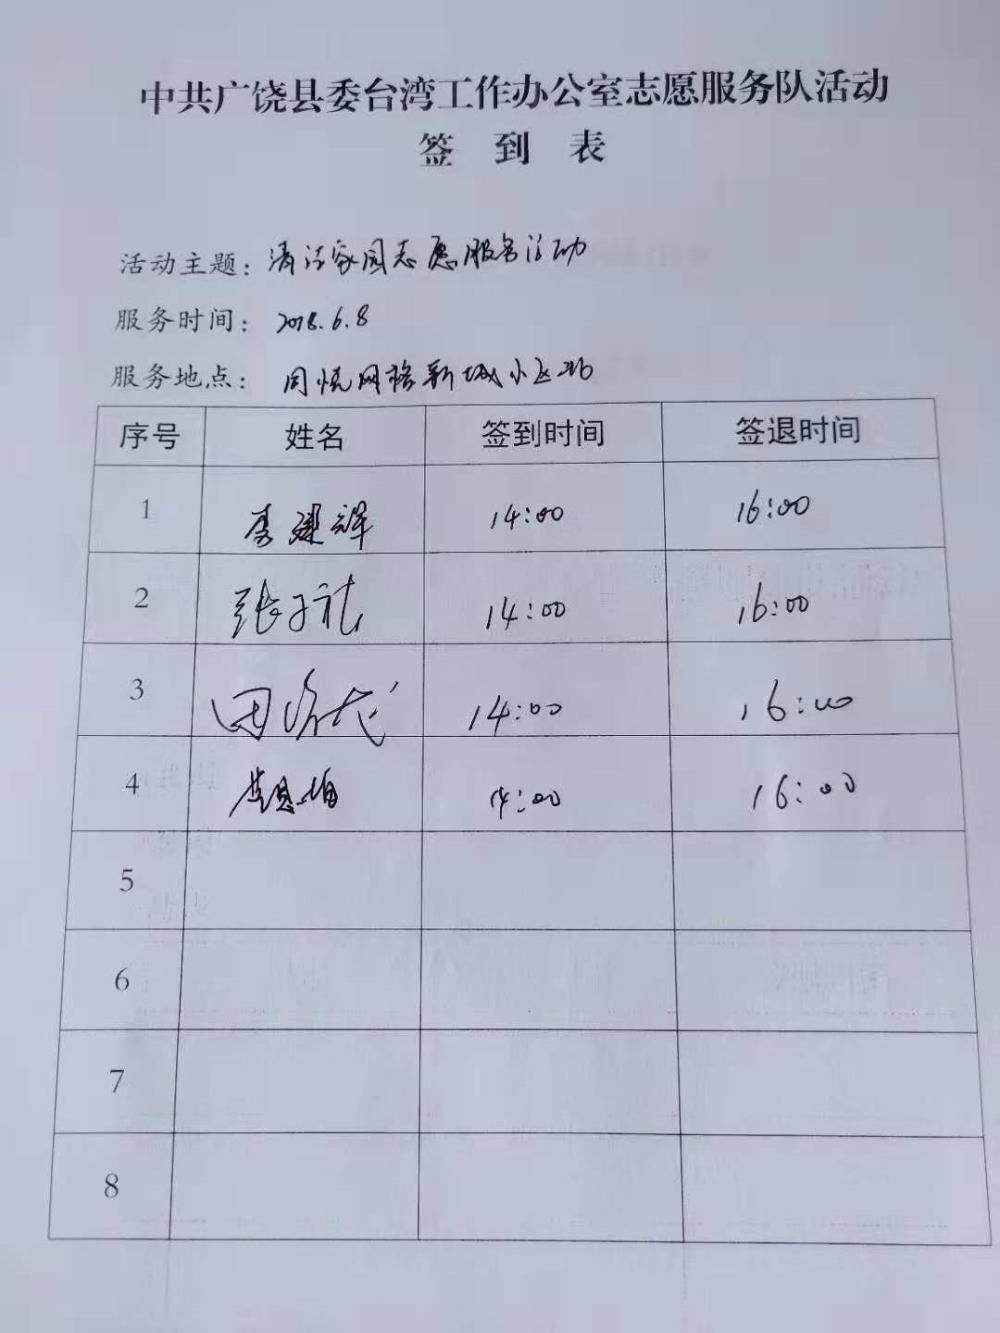 中共广饶县委台湾工作办公室志愿服务队活动
签 到 表
活动主题：清洁家园志愿服务活动
服务时间：2018.6.8
服务地点：同悦网格新城小区北
序号 姓名 签到时间 签退时间
1 李建辉 14:00 16:00
2 张子社 14:00 16:00
3 14:00 16:00
4 14:00 16:00
5
6
7
8